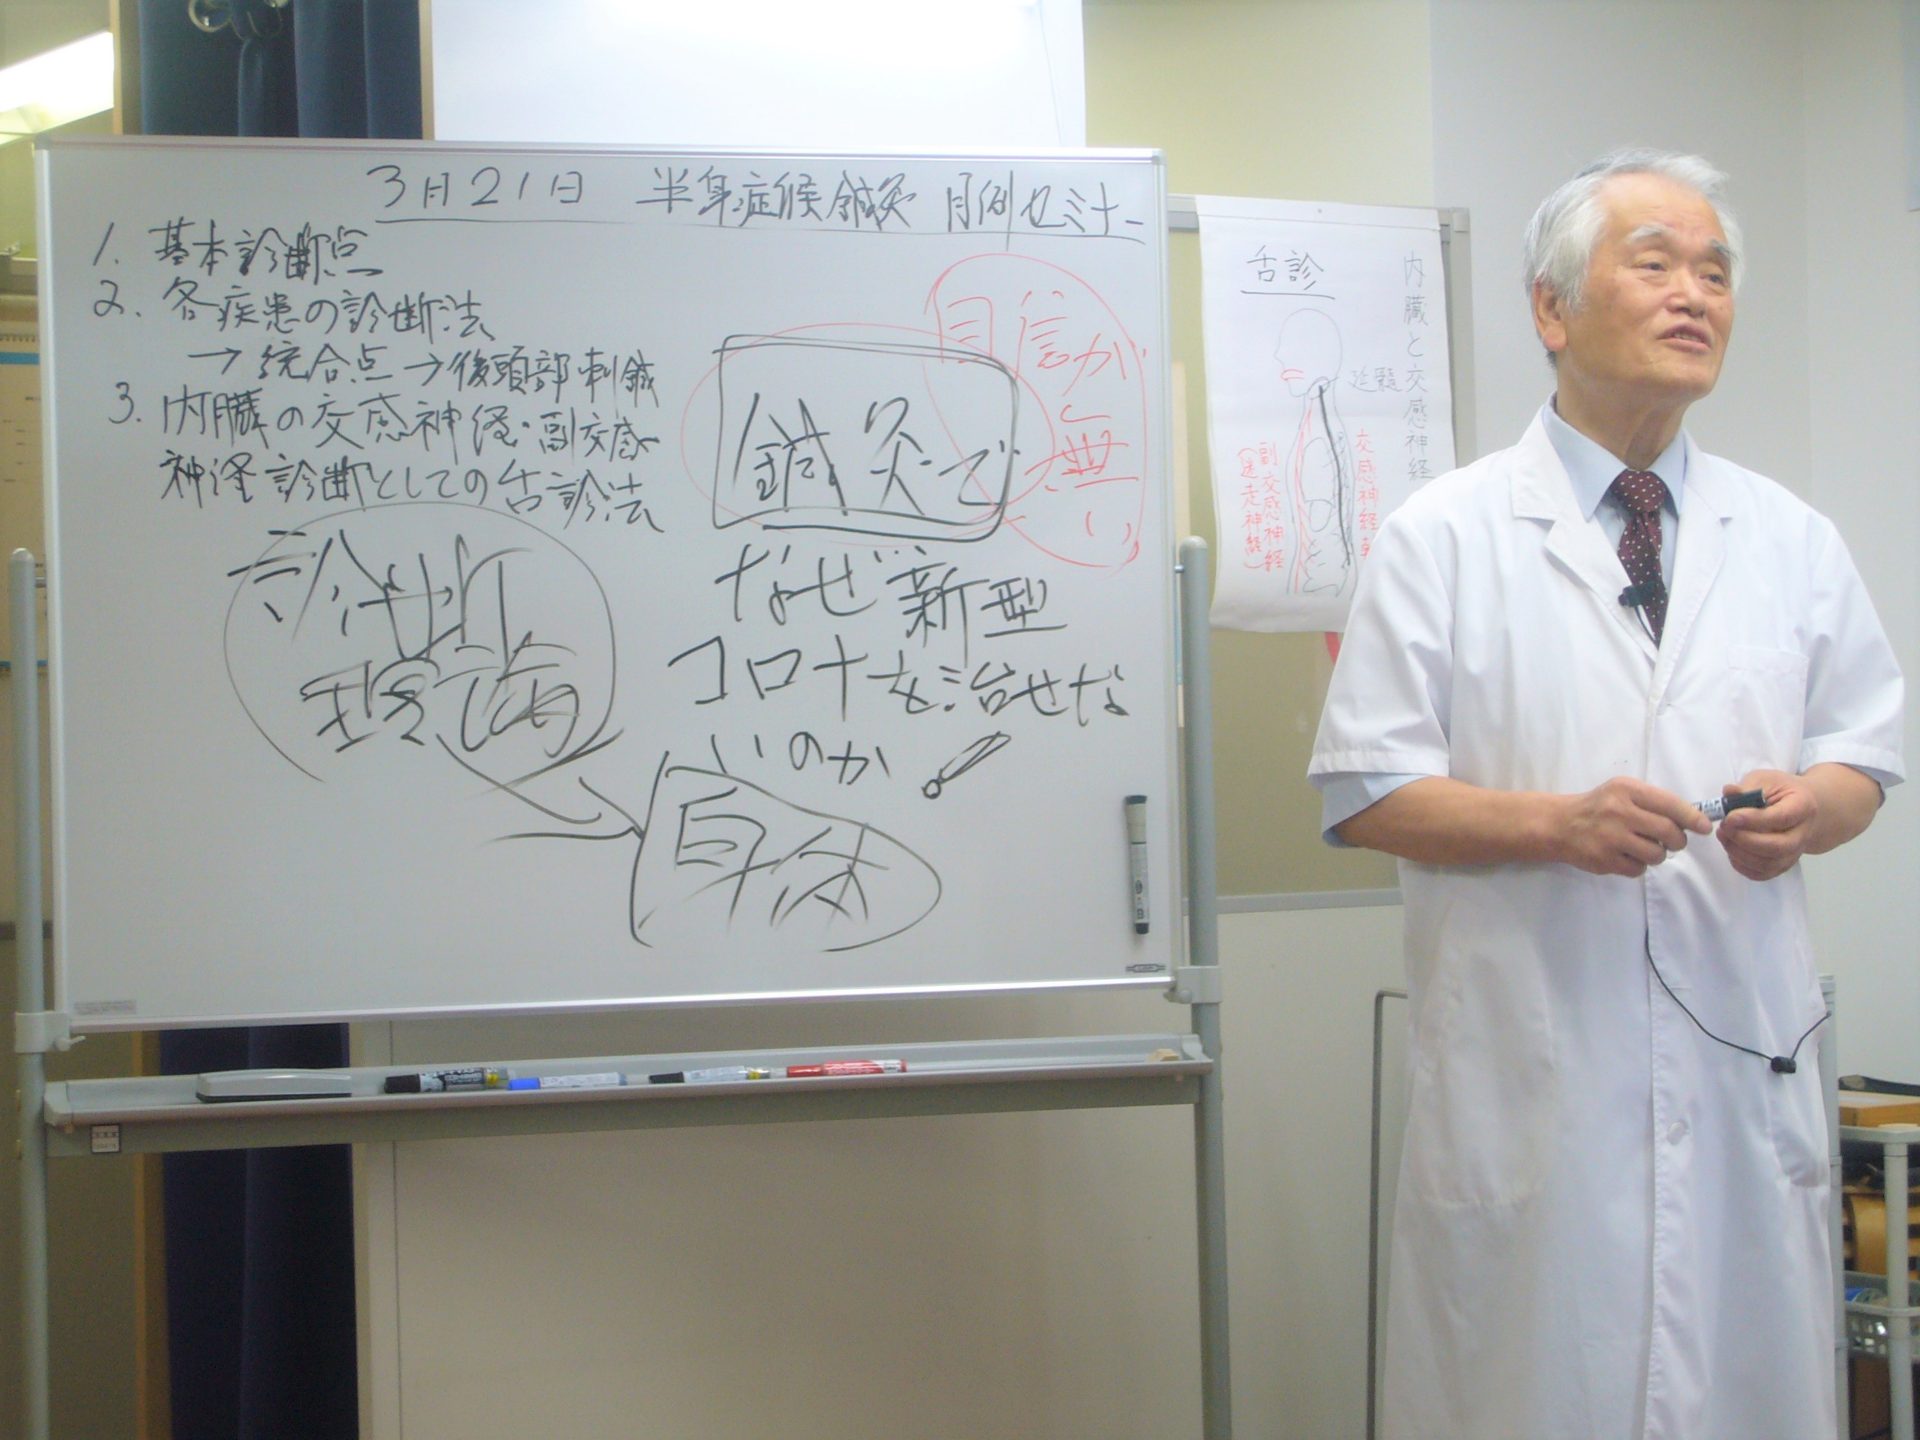 3月21日 半身症候鍼灸 月例セミナー
1. 基本診断点
2. 各疾患の診断法
→統合点→後頭部刺鍼
3. 内臓の交感神経・副交感
神経診断としての舌診法
診断
理論
自信が無い
鍼灸で
なぜ新型
コロナを治せな
いのか
自体
舌診
内臓と交感神経
延髄
交感神経幹
副交感神経
(迷走神経)